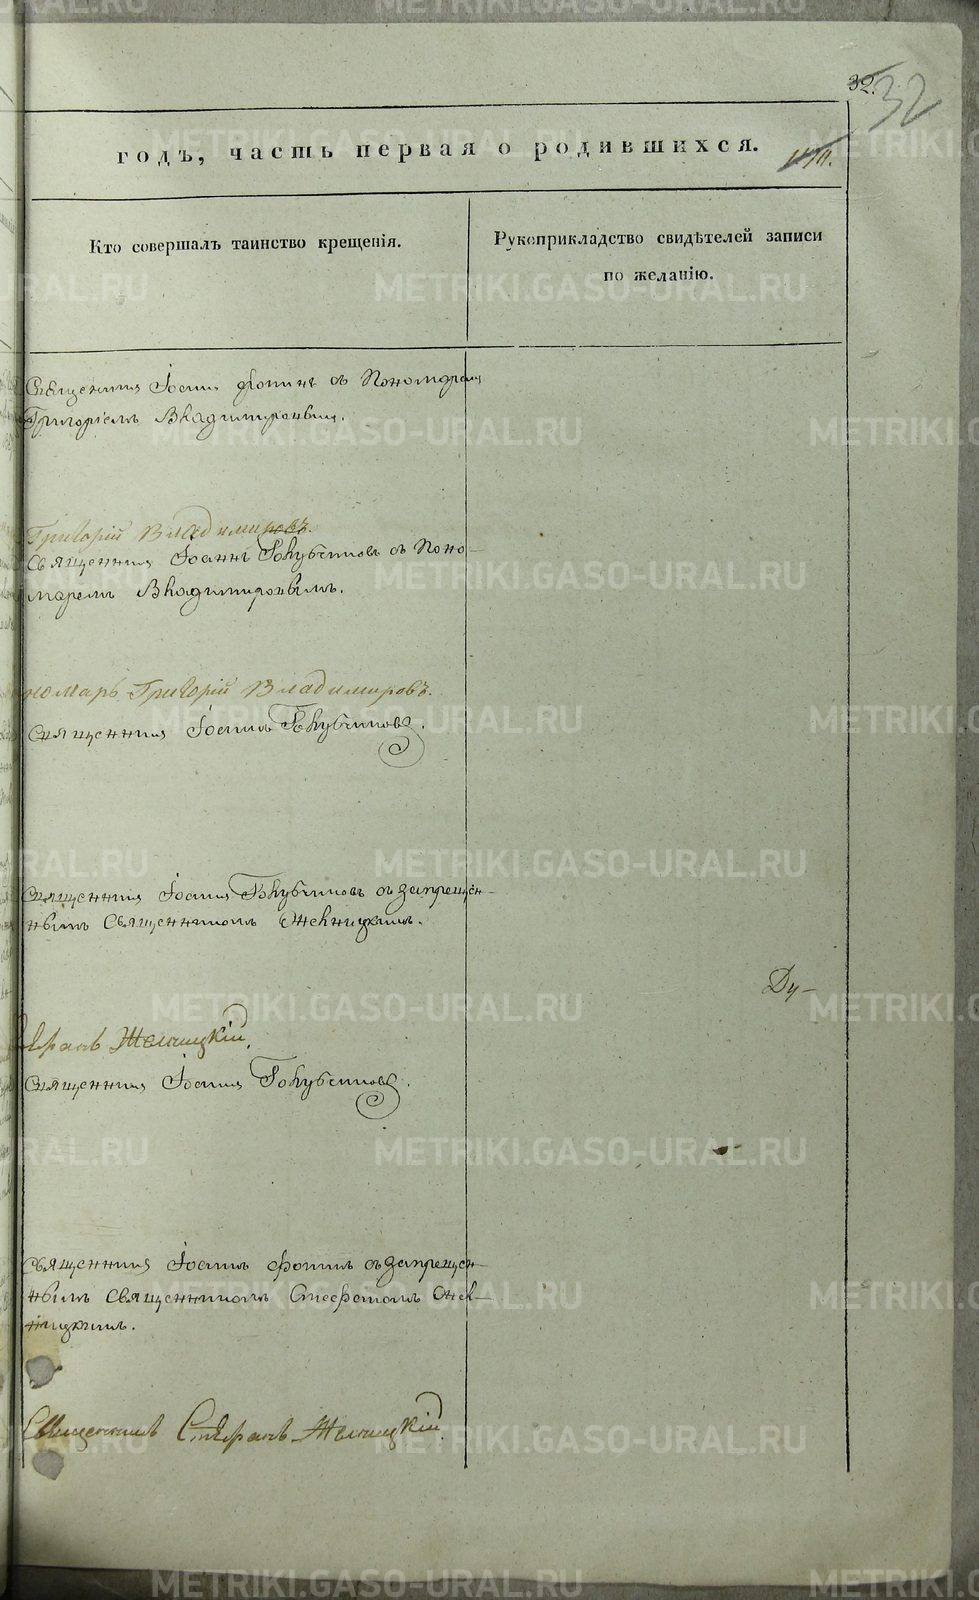 32. 32
годъ, часть первая о родившихся.
Кто совершалъ таинство крещенія.
Рукоприкладство свидѣтелей записи
по желанію.
Священникъ Іоаннъ Фотинъ съ Пономаремъ
Григоріемъ Владимировымъ.
Григорій Владимировъ.
Священникъ Іоаннъ Голубчиковъ съ Поно-
маремъ Владимировымъ.
номарь Григорій Владимировъ.
Священникъ Іоаннъ Голубчиковъ.
Священникъ Іоаннъ Голубчиковъ съ запрещен-
нымъ Священникомъ Желницкимъ.
Ду-
Желницкій.
Священникъ Іоаннъ Голубчиковъ.
Священникъ Іоаннъ Фотинъ съ запрещен-
нымъ Священникомъ Стефаномъ Жел-
ницкимъ.
Священникъ Стефанъ Желницкій.
METRIKI.GASO-URAL.RU